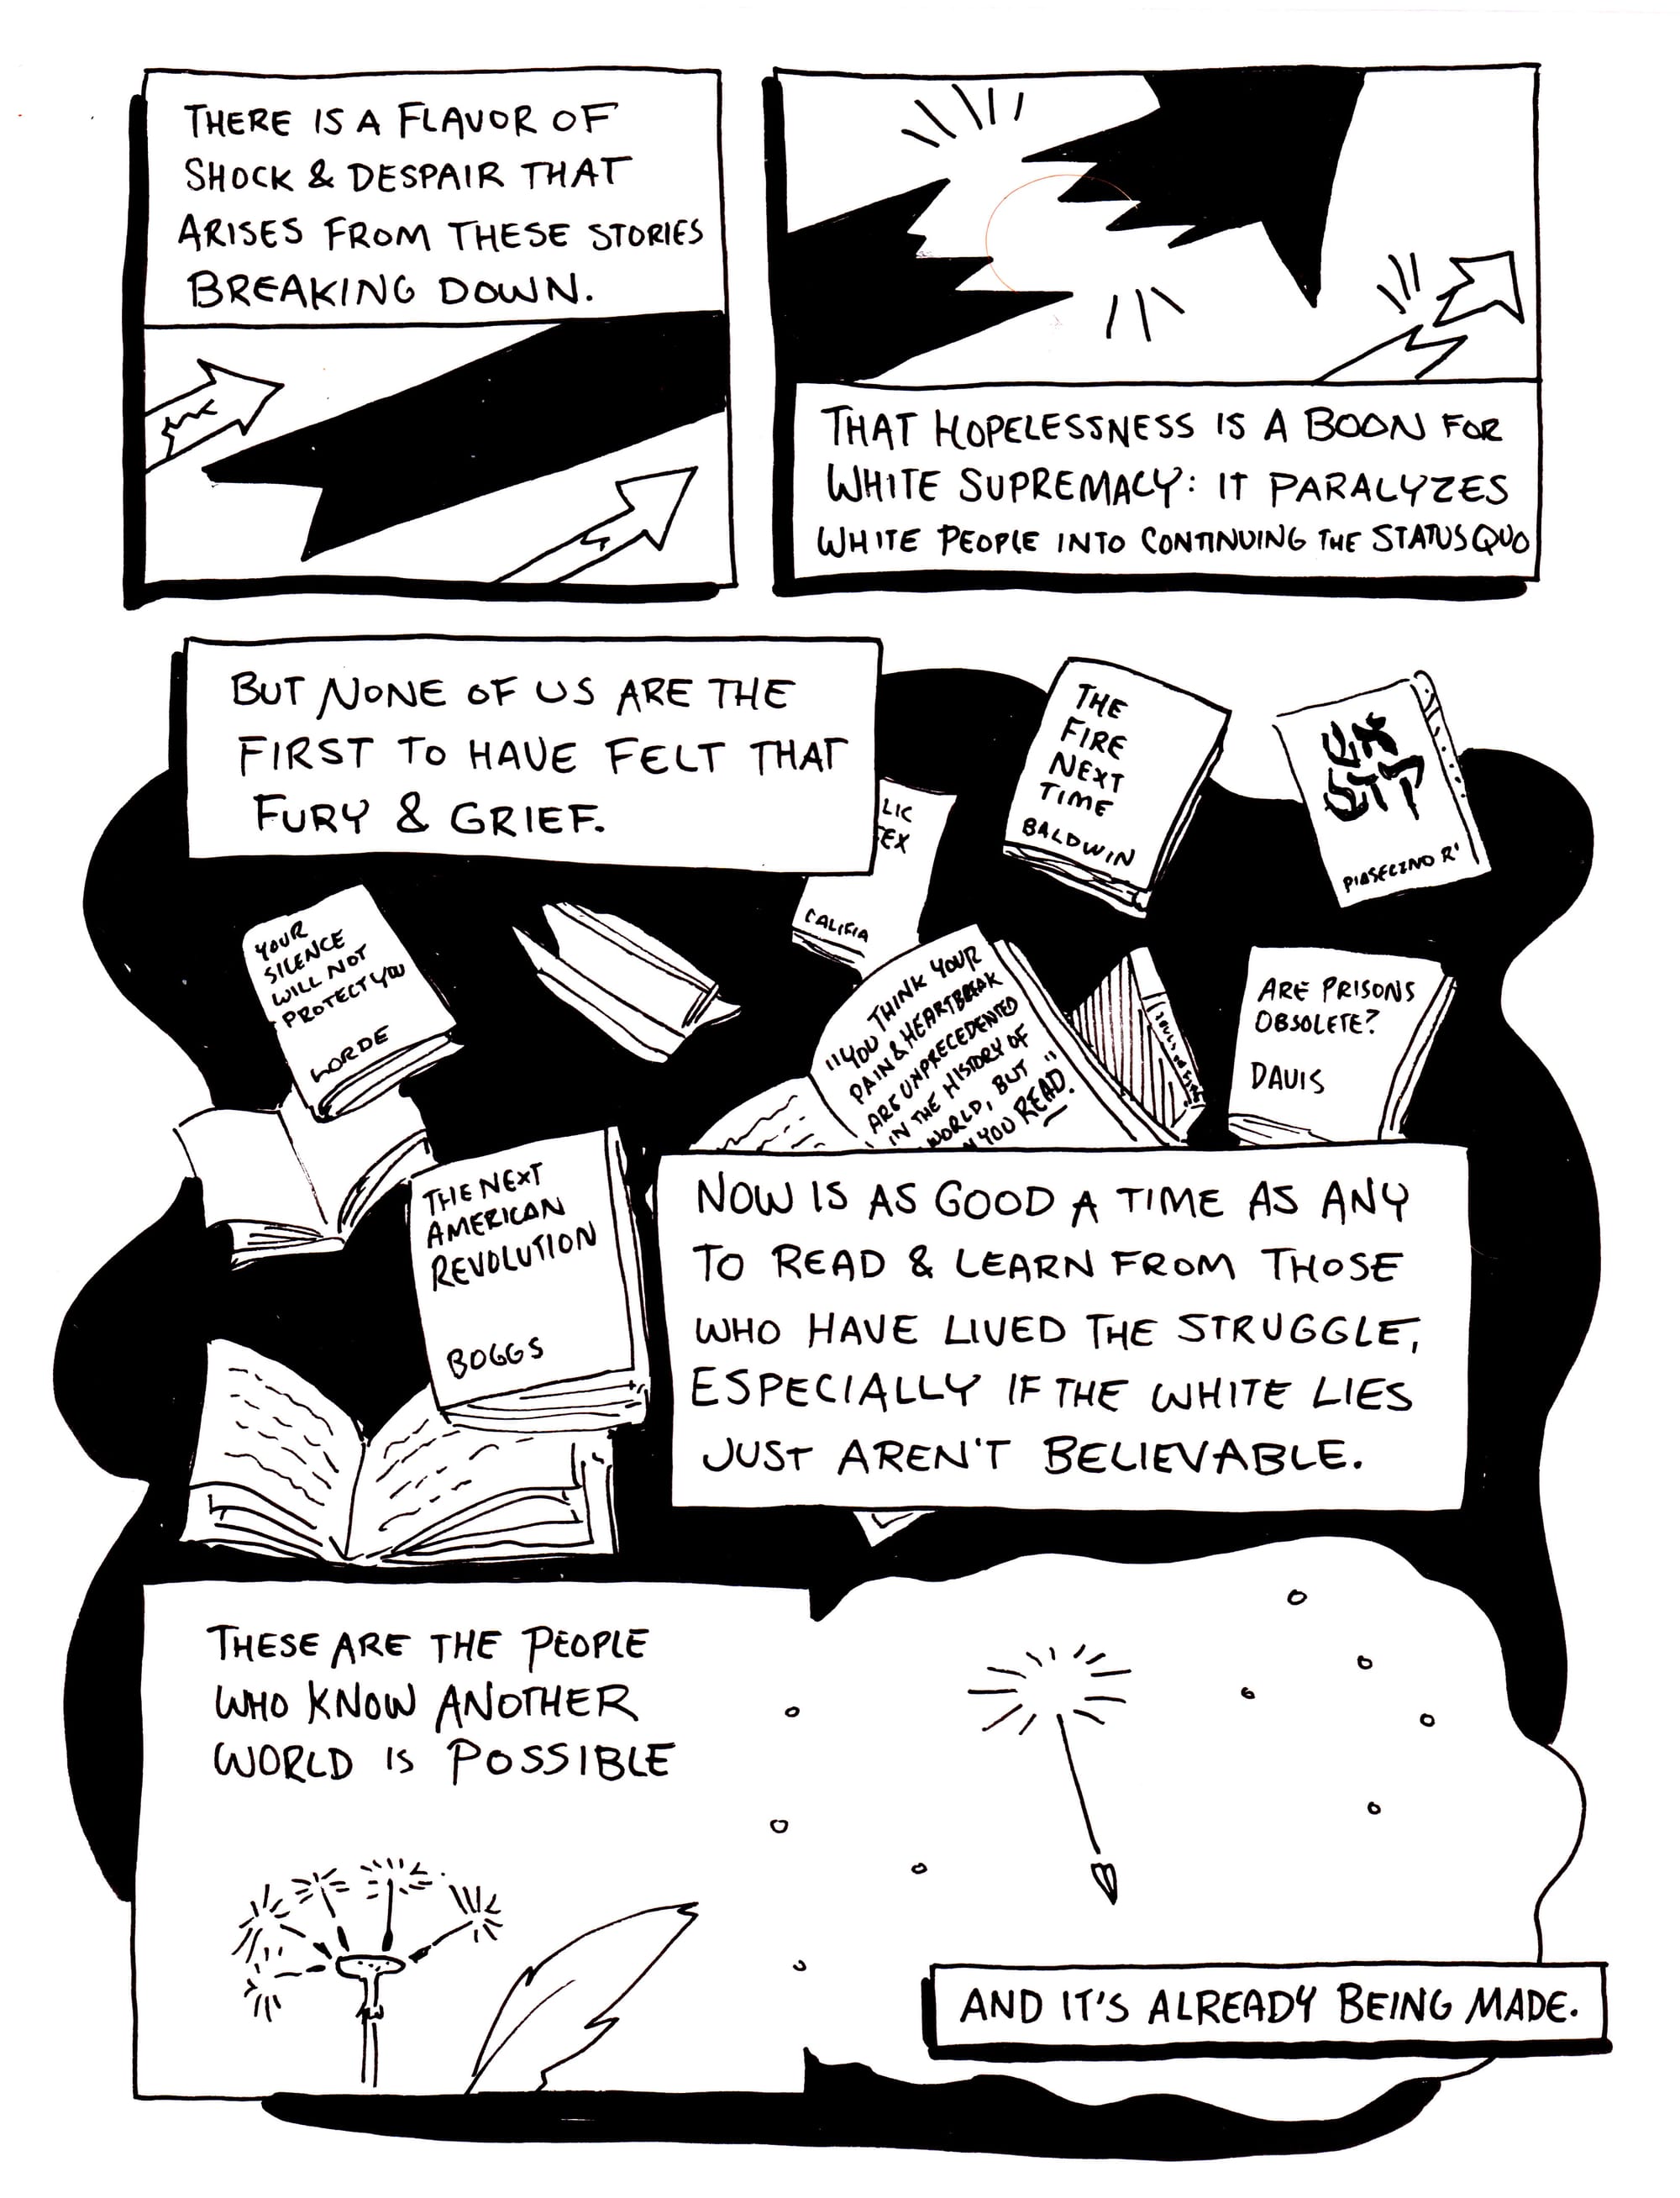 THERE IS A FLAVOR OF
SHOCK & DESPAIR THAT
ARISES FROM THESE STORIES
BREAKING DOWN.
THAT HOPELESSNESS IS A BOON FOR
WHITE SUPREMACY: IT PARALYZES
WHITE PEOPLE INTO CONTINUING THE STATUS QUO
BUT NONE OF US ARE THE
FIRST TO HAVE FELT THAT
FURY & GRIEF.
LIC
EX
CALIFIA
THE
FIRE
NEXT
TIME
BALDWIN
YOUR
SILENCE
WILL NOT
PROTECT YOU
LORDE
"YOU THINK YOUR
PAIN & HEARTBREAK
ARE UNPRECEDENTED
IN THE HISTORY OF
WORLD, BUT
YOU READ."
ARE PRISONS
OBSOLETE?
DAVIS
THE NEXT
AMERICAN
REVOLUTION
BOGGS
NOW IS AS GOOD A TIME AS ANY
TO READ & LEARN FROM THOSE
WHO HAVE LIVED THE STRUGGLE,
ESPECIALLY IF THE WHITE LIES
JUST AREN'T BELIEVABLE.
THESE ARE THE PEOPLE
WHO KNOW ANOTHER
WORLD IS POSSIBLE
AND IT'S ALREADY BEING MADE.